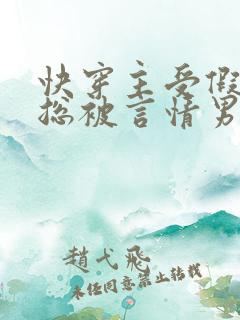 快穿主受假
总被言情男
趙弋飛
未经同意禁止转载